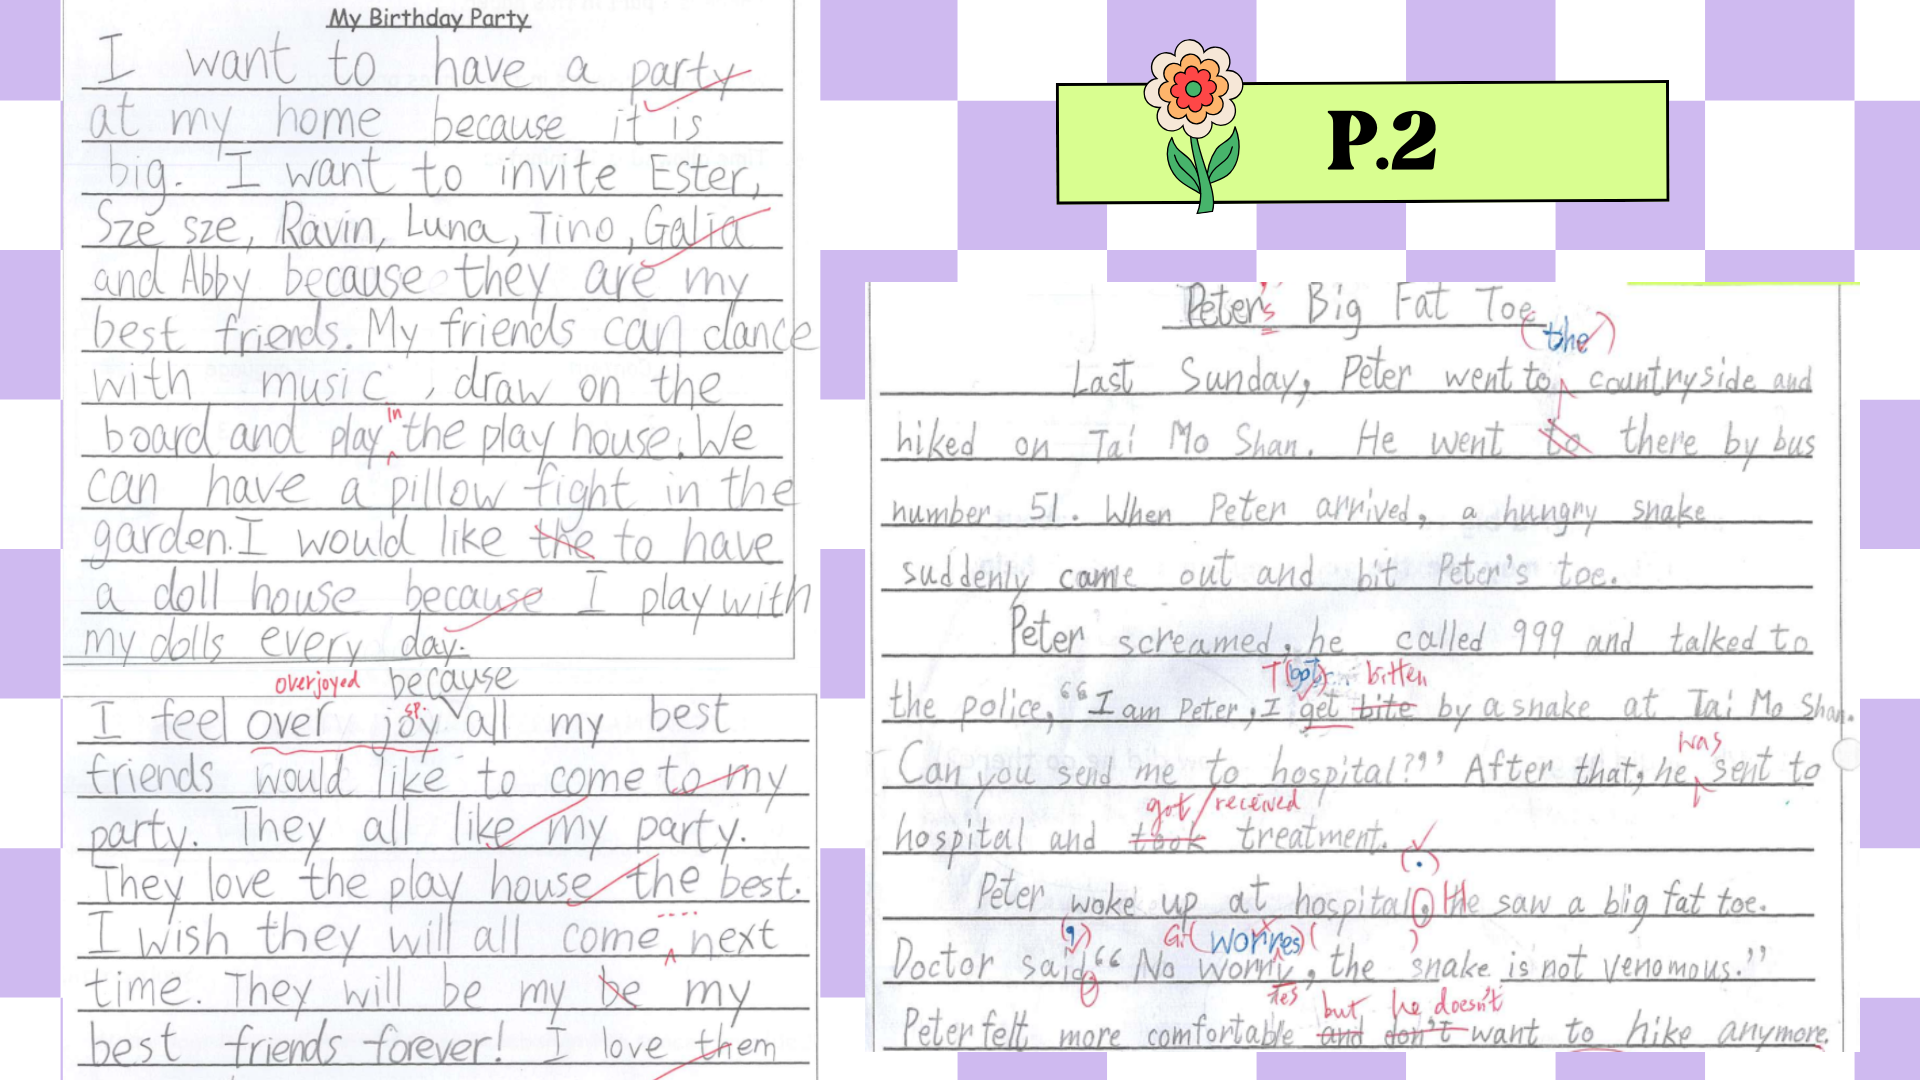 My Birthday Party
I want to have a party
at my home because it is
big. I want to invite Ester,
Sze sze, Ravin, Luna, Tino, Galia
and Abby because they are my
best friends. My friends can dance
with music, draw on the
in
board and play the play house. We
can have a pillow fight in the
garden. I would like the to have
a doll house because I play with
my dolls every day.
overjoyed because
sp.
I feel over joy all my best
friends would like to come to my
party. They all like my party.
They love the play house the best.
I wish they will all come next
time. They will be my be my
best friends forever! I love them
P.2
Peter's Big Fat Toe
(the)
Last Sunday, Peter went to countryside and
hiked on Tai Mo Shan. He went to there by bus
number 51. When Peter arrived, a hungry snake
suddenly came out and bit Peter's toe.
Peter screamed, he called 999 and talked to
bitten
the police, “I am Peter, I get bite by a snake at Tai Mo Shan.
was
Can you send me to hospital?” After that, he sent to
got / received
hospital and took treatment.
(.)
Peter woke up at hospital, He saw a big fat toe.
(,) Gr (worries) ( )
Doctor said “No worry, the snake is not venomous.”
ies
but he doesn't
Peter felt more comfortable and don't want to hike anymore.